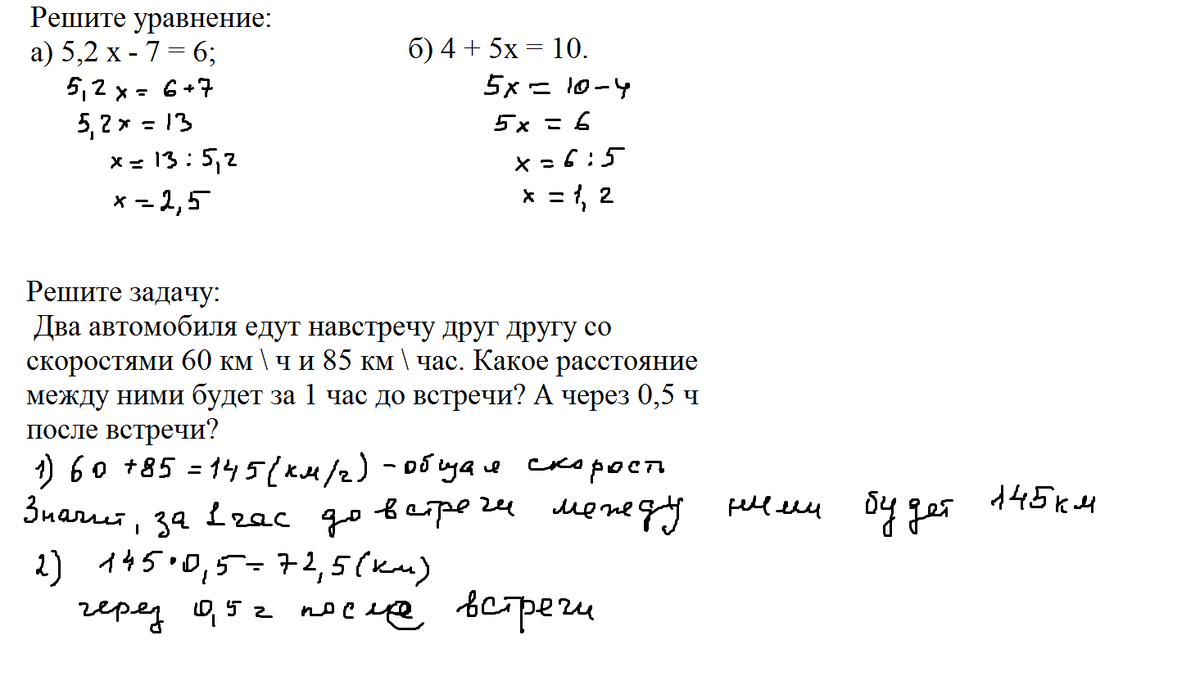 Решите уравнение:
а) 5,2 х - 7 = 6;
5,2 х = 6+7
5,2х = 13
х = 13 : 5,2
х = 2,5
б) 4 + 5х = 10.
5х = 10-4
5х = 6
х = 6 : 5
х = 1,2
Решите задачу:
Два автомобиля едут навстречу друг другу со
скоростями 60 км \ ч и 85 км \ час. Какое расстояние
между ними будет за 1 час до встречи? А через 0,5 ч
после встречи?
1) 60 +85 = 145(км/ч) - общая скорость
Значит, за 1 час до встречи между ними будет 145км
2) 145·0,5= 72,5(км)
через 0,5 ч после встречи